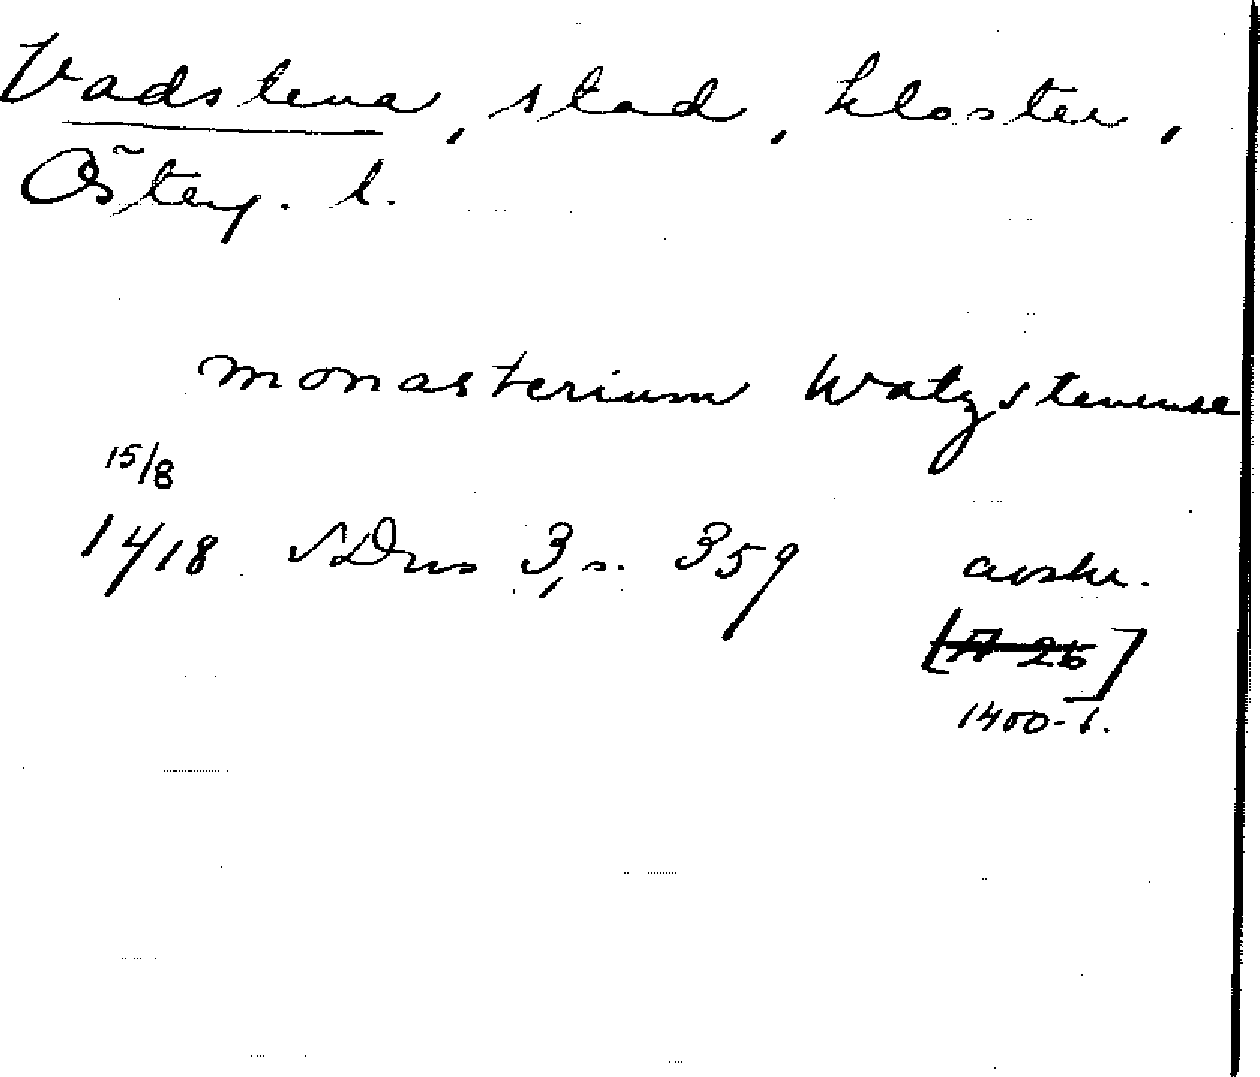 Vadstena, stad, kloster,
Österg. l.
monasterium Watzstenense
15/8
1418 SDns 3, s. 359 avskr.
[A 26]
1400-t.